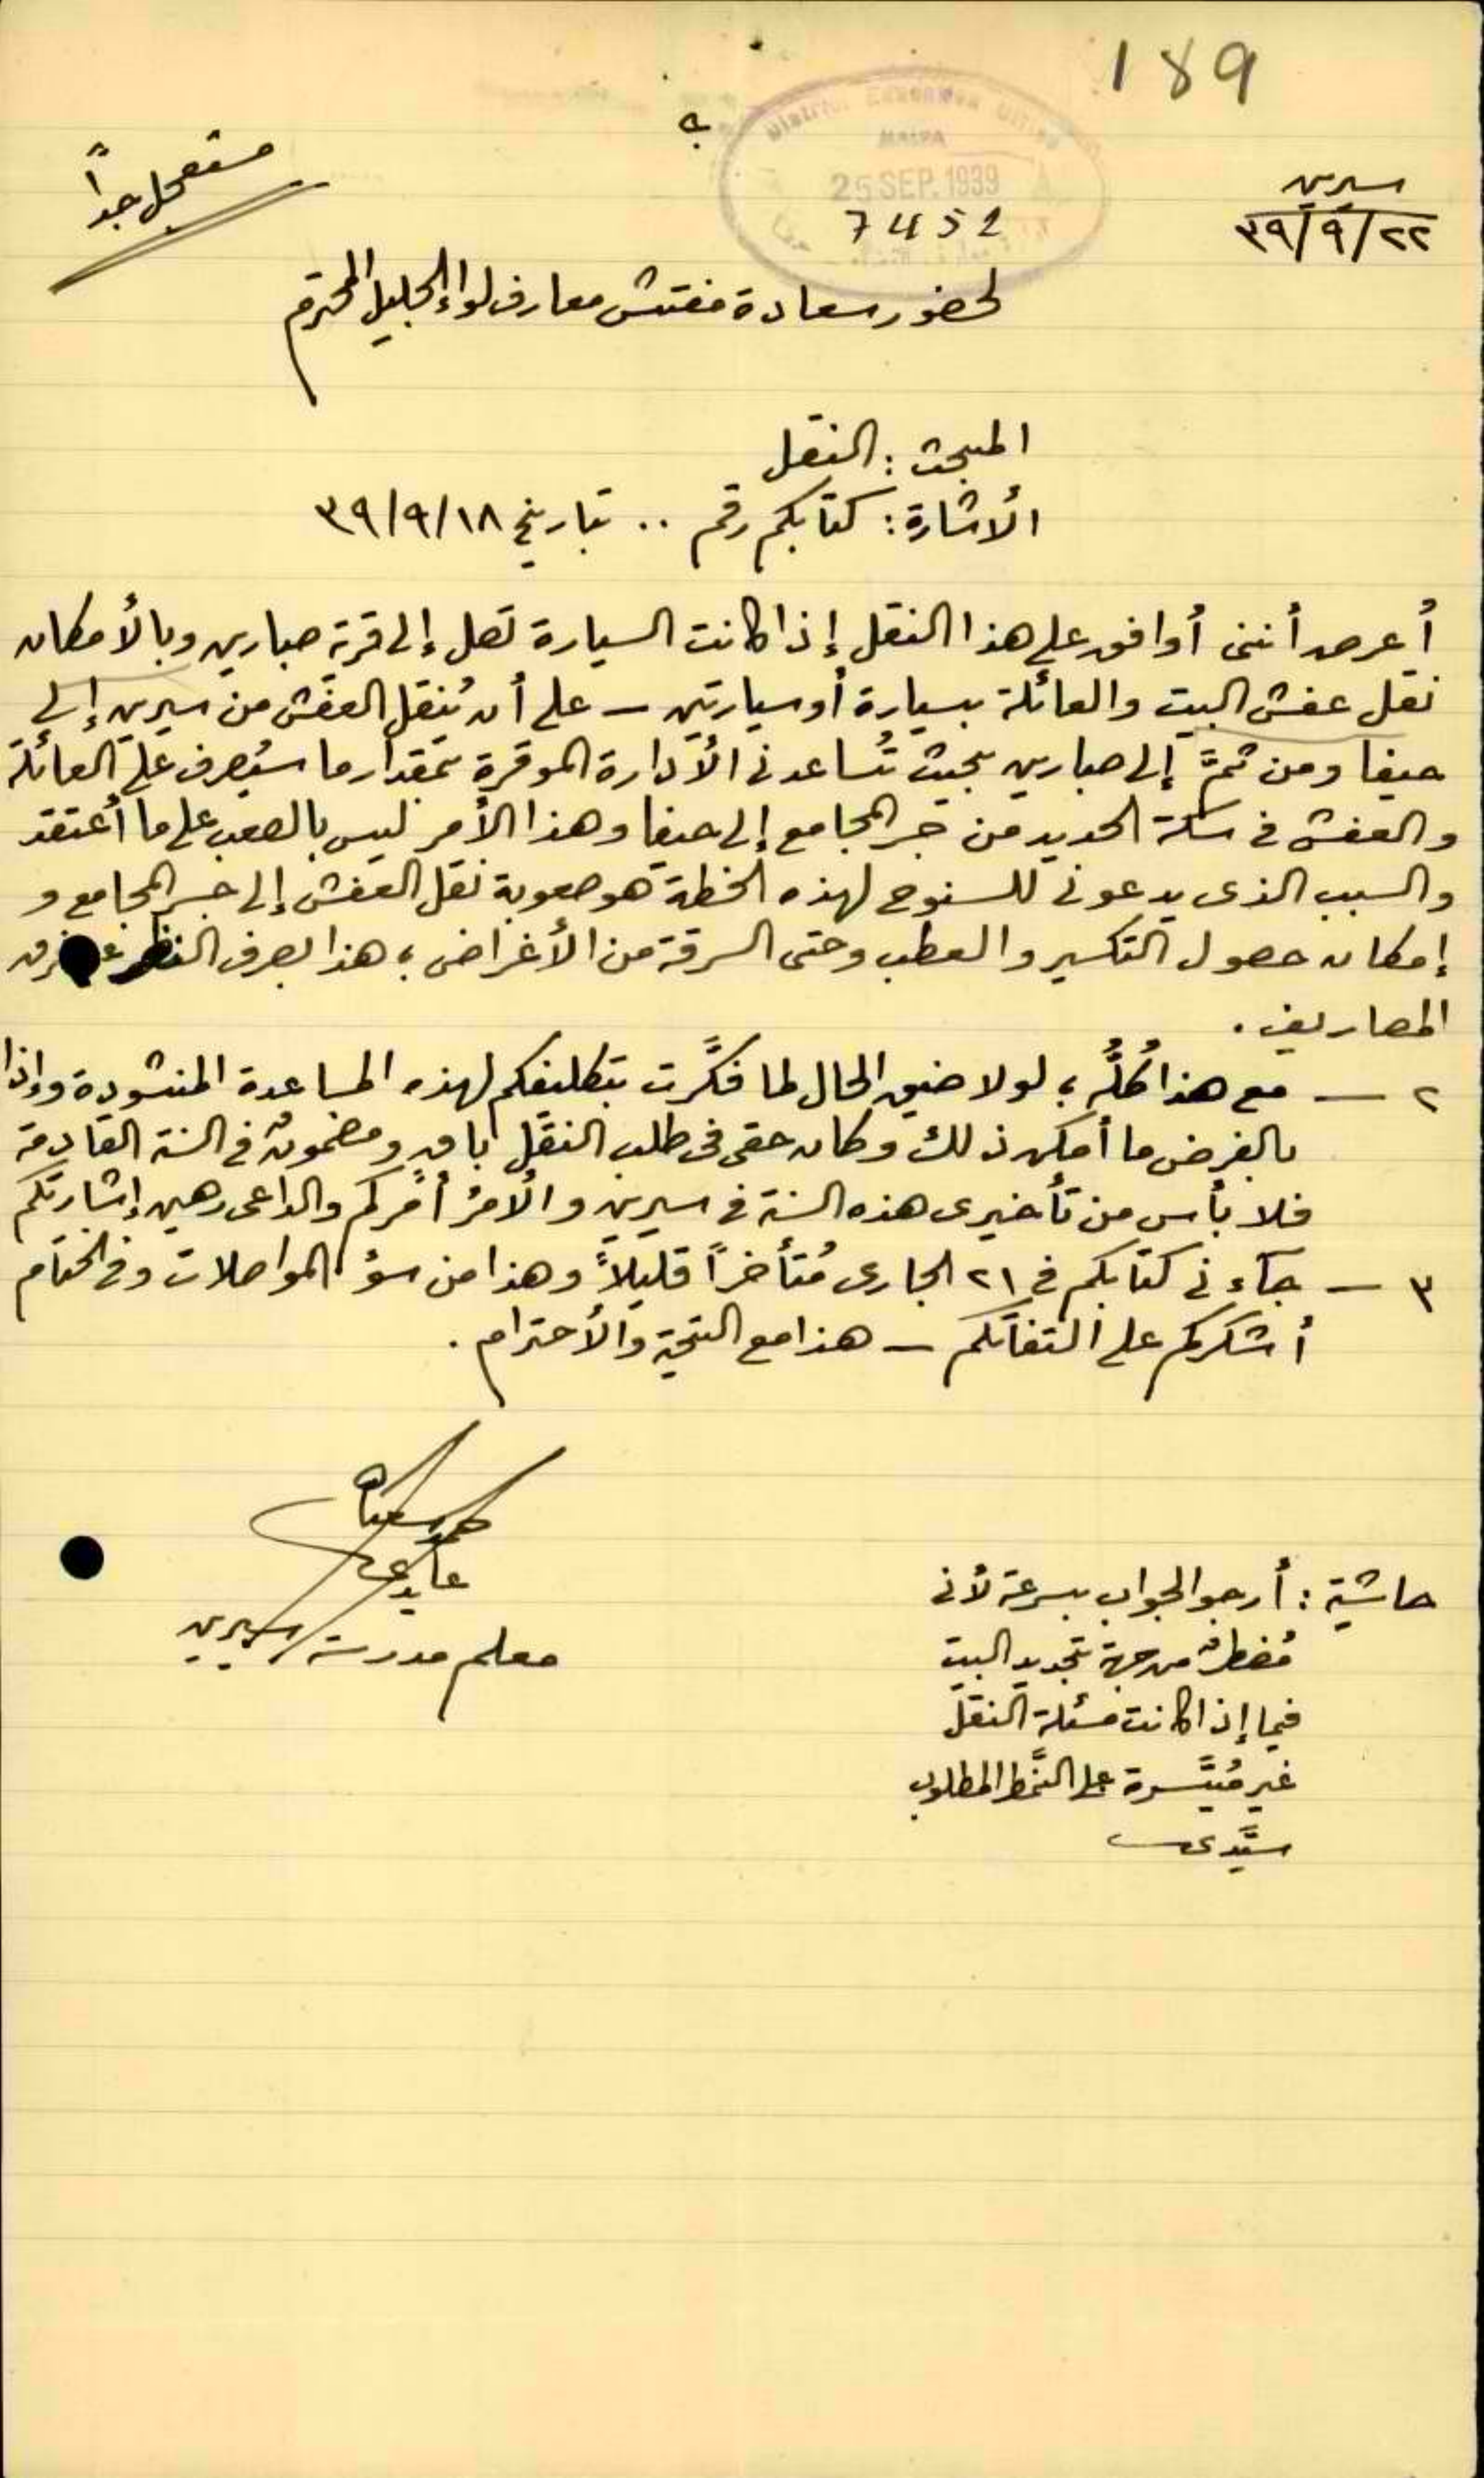 189
District Education Office
HAIFA
25 SEP. 1939
7452
سيرين
٢٢/٩/٣٩
مستعجل جداً
لحضور سعادة مفتش معارف لواء الجليل المحترم
المبحث : النقل
الأشارة : كتابكم رقم .. بتاريخ ١٨/٩/٣٩
أعرض أنني أوافق على هذا النقل إذا كانت السيارة تصل إلى قرية صبارين وبالأمكان
نقل عفش البيت والعائلة بسيارة أو سيارتين – على أن يُنقل العفش من سيرين إلى
حيفا ومن ثمَّ إلى صبارين بحيث تُساعدني الأدارة الموقرة بمقدار ما سيُصرف على العائلة
والعفش في سكة الحديد من جسر المجامع إلى حيفا وهذا الأمر ليس بالصعب على ما أعتقد
والسبب الذى يدعوني للسنوح لهذه الخطة هو صعوبة نقل العفش إلى جسر المجامع و
إمكان حصول التكسير والعطب وحتى السرقة من الأغراض ، هذا بصرف النظر فرق
المصاريف .
٢ – مع هذا كُلُّه ، لولا ضيق الحال لما فكَّرت بتكليفكم لهذه المساعدة المنشودة وإذا
بالفرض ما أمكن ذلك وكان حقى في طلب النقل باقٍ ومضمونٌ في السنة القادمة
فلا بأس من تأخيرى هذه السنة في سيرين والأمرُ أمركم والداعى رهين إشارتكم
٣ – جاءني كتابكم في ٢١ الجارى مُتأخراً قليلاً وهذا من سؤ المواصلات وفي الختام
أشكركم على التفاتكم – هذا مع التحية والأحترام .
عايدى
معلم مدرسة سيرين
حاشية : أرجو الجواب بسرعة لأني
مُضطرٌ من جهة تجديد البيت
فيما إذا كانت مسئلة النقل
غير مُيَسَّرة على النَّمط المطلوب
سيَّدى